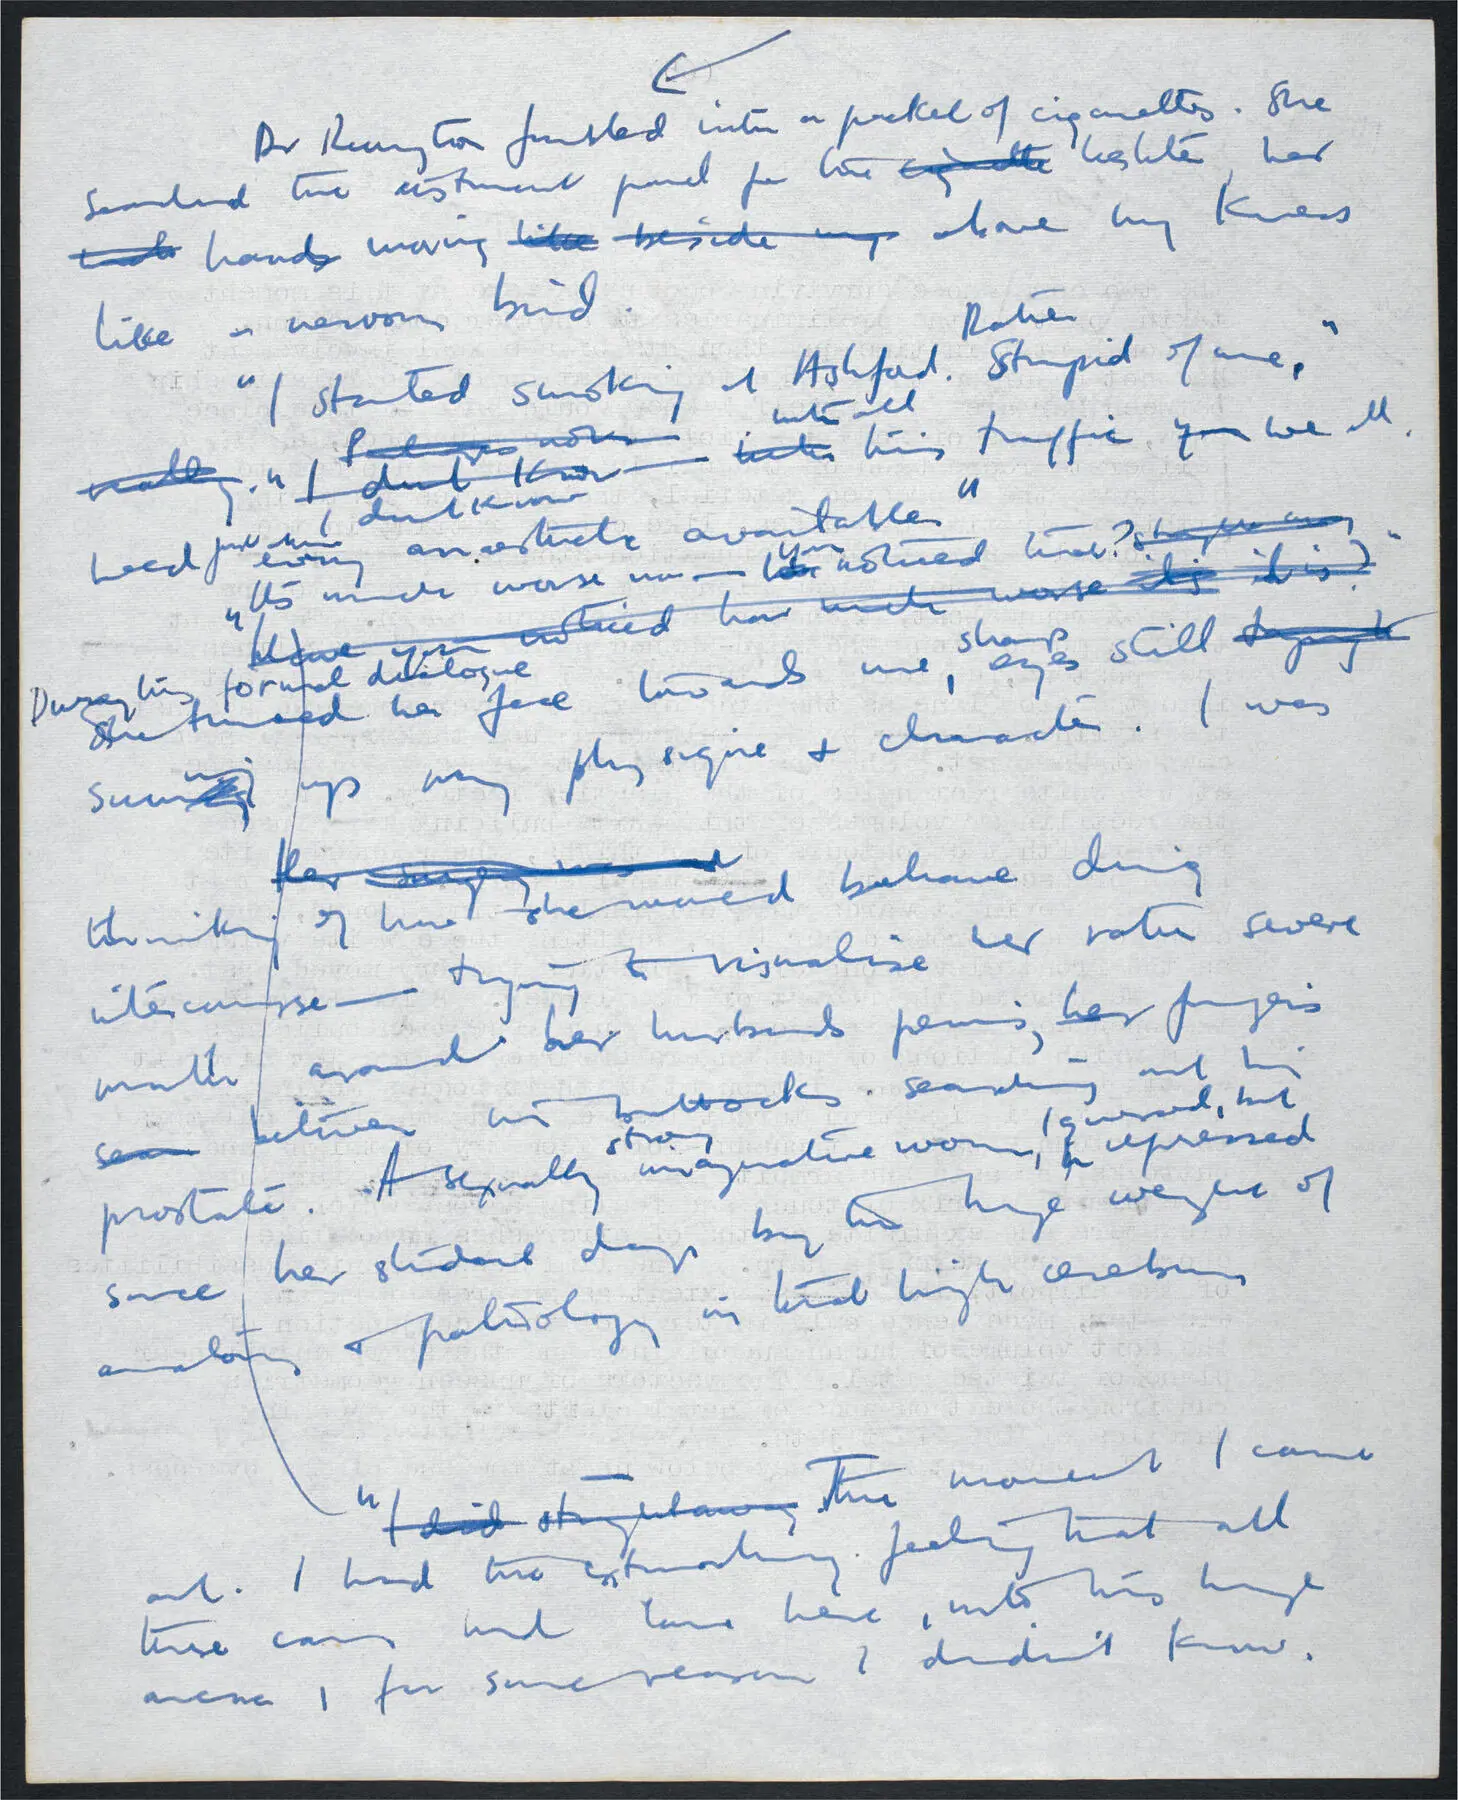 Dr Remington fumbled with a packet of cigarettes. She
searched the instrument panel for the cigarette lighter, her
hands moving like beside my above my knees
like a nervous bird.
Rather
"I started smoking at Ashford. Stupid of me,"
really." I don't know — with all this traffic you we all
I don't know
need just about every anaesthetic available"
"It's much worse now — you noticed that?
Have you noticed how much worse it is it is?"
During this formal dialogue
She turned her face towards me, sharp eyes still
summing up my physique + character. I was
Her
thinking of how she would behave during
intercourse — trying to visualise her rather severe
mouth around her husbands penis, her fingers
between his buttocks searching out his
prostate. A sexually strong imaginative woman, I guessed, but repressed
since her student days by the huge weight of
anatomy + pathology in that high cerebrum
"I did straightaway. The moment I came
out. I had the extraordinary feeling that all
these cars had come here, into this huge
arena, for some reason I didn't know.